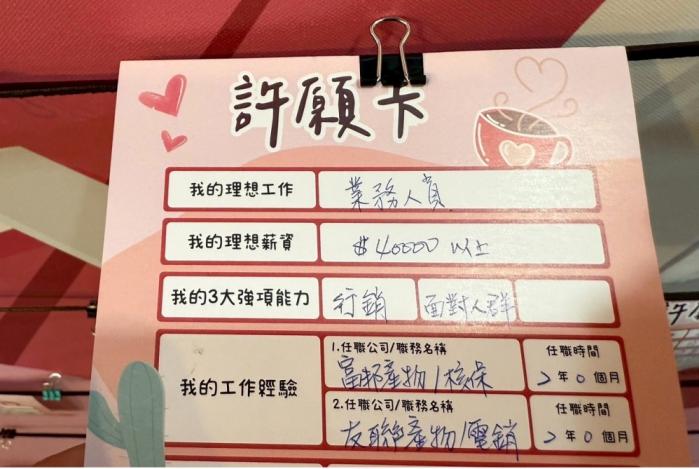 許願卡
我的理想工作 業務人員
我的理想薪資 $40000 以上
我的3大強項能力 行銷 面對人群
我的工作經驗
1.任職公司/職務名稱 任職時間
富邦產物/核保 2年0個月
2.任職公司/職務名稱 任職時間
友聯產物/電銷 2年0個月